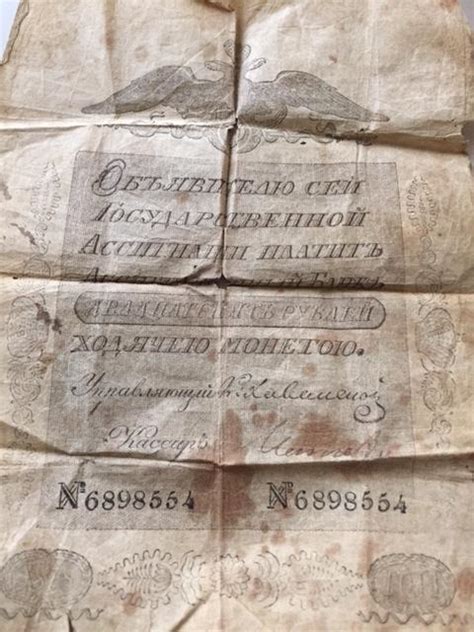 Объявителю сей
Государственной
Ассигнации платитъ
Ассигнаціонный Банкъ
двадцать пять рублей
ходячею монетою.
Управляющій
Кассиръ
№6898554 №6898554